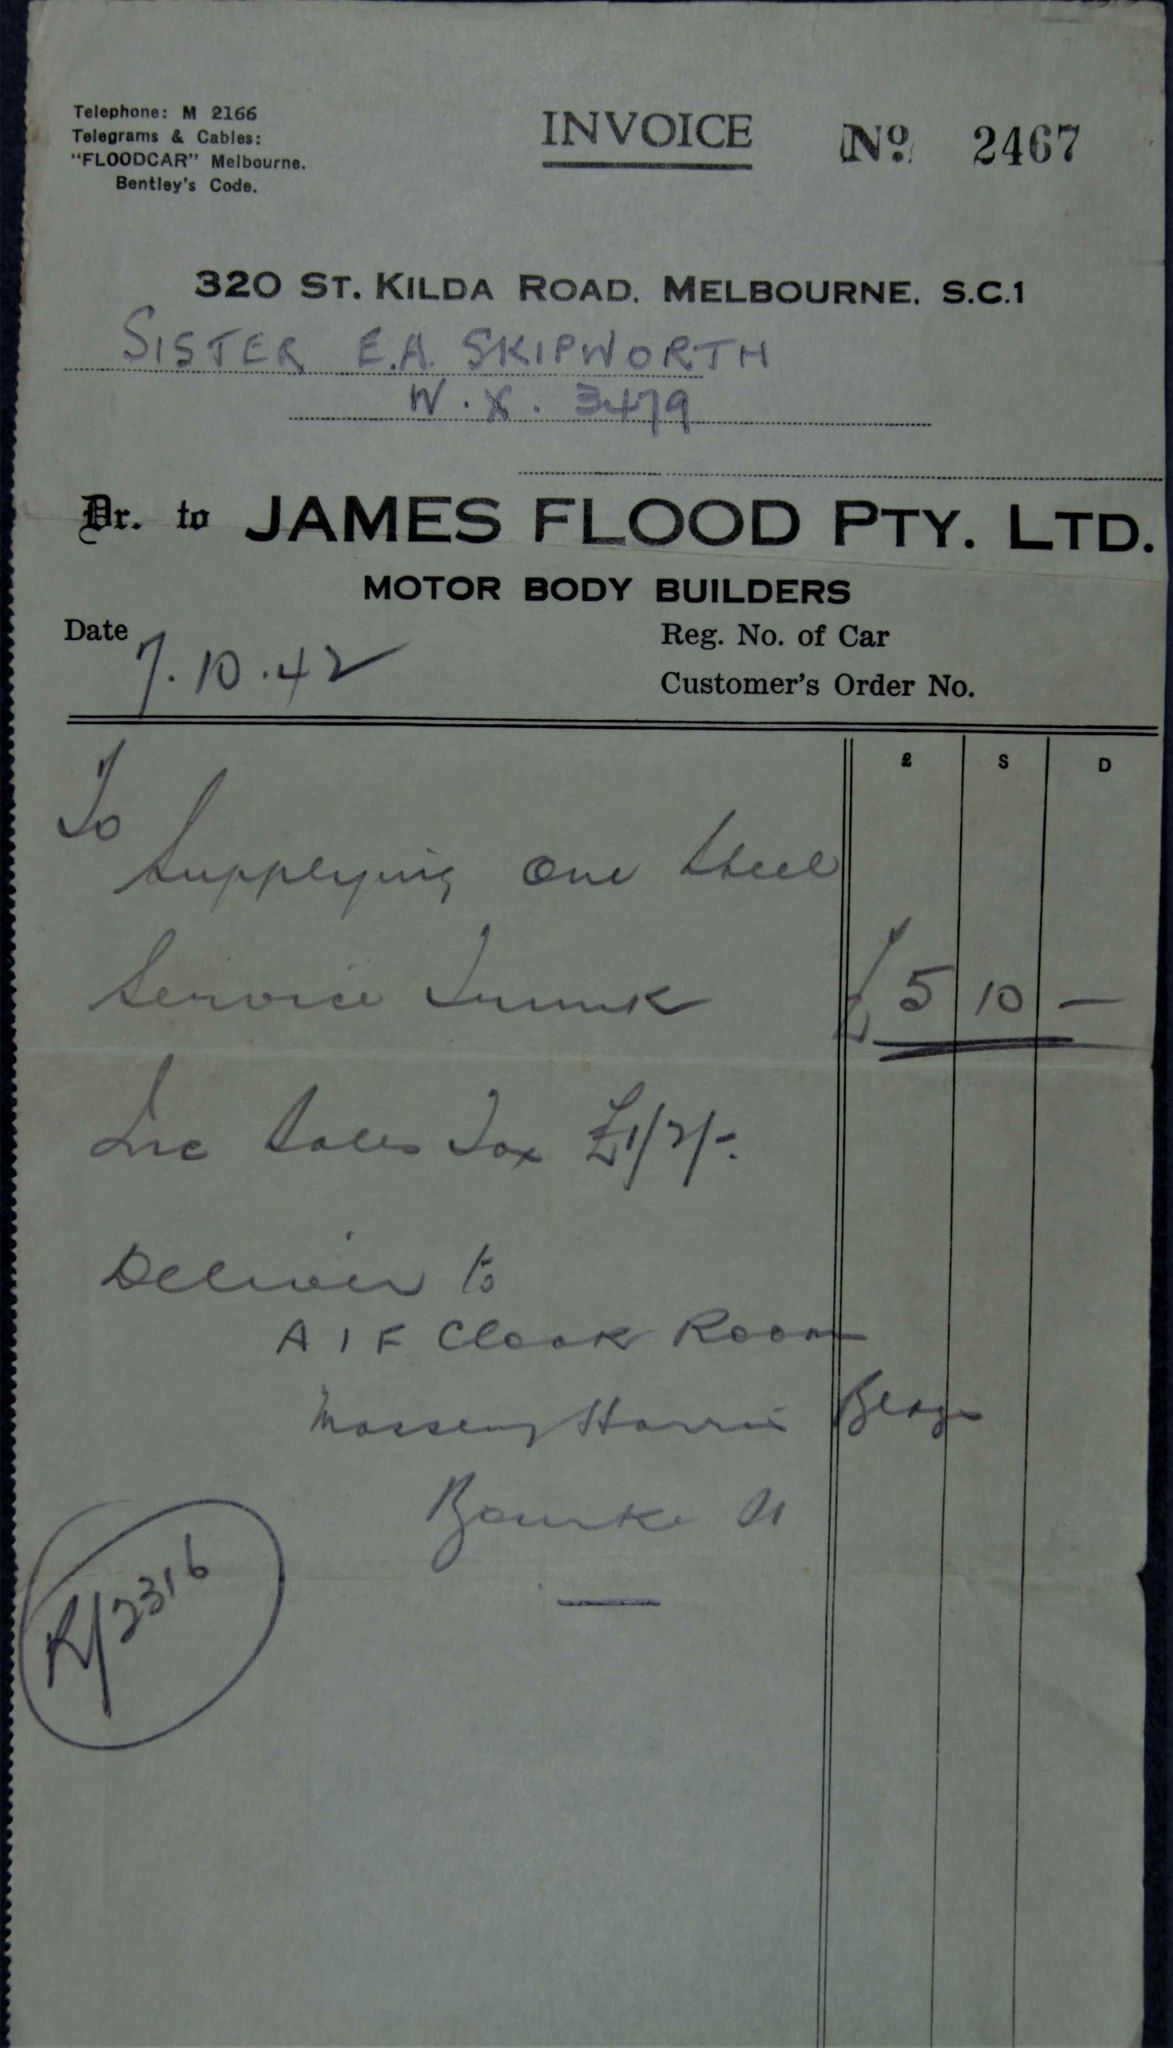 Telephone: M 2166
Telegrams & Cables:
"FLOODCAR" Melbourne.
Bentley's Code.
INVOICE No. 2467
320 ST. KILDA ROAD. MELBOURNE. S.C.1
SISTER E.A. SKIPWORTH
W.X. 3479
Dr. to JAMES FLOOD PTY. LTD.
MOTOR BODY BUILDERS
Date 7.10.42
Reg. No. of Car
Customer's Order No.
£ S D
To
Supplying one steel
Service Trunk £ 5 10 —
Inc Sales Tax £1/2/-.
Deliver to
A I F Cloak Room
Massey Harris Bldgs
Bourke St
R/2316